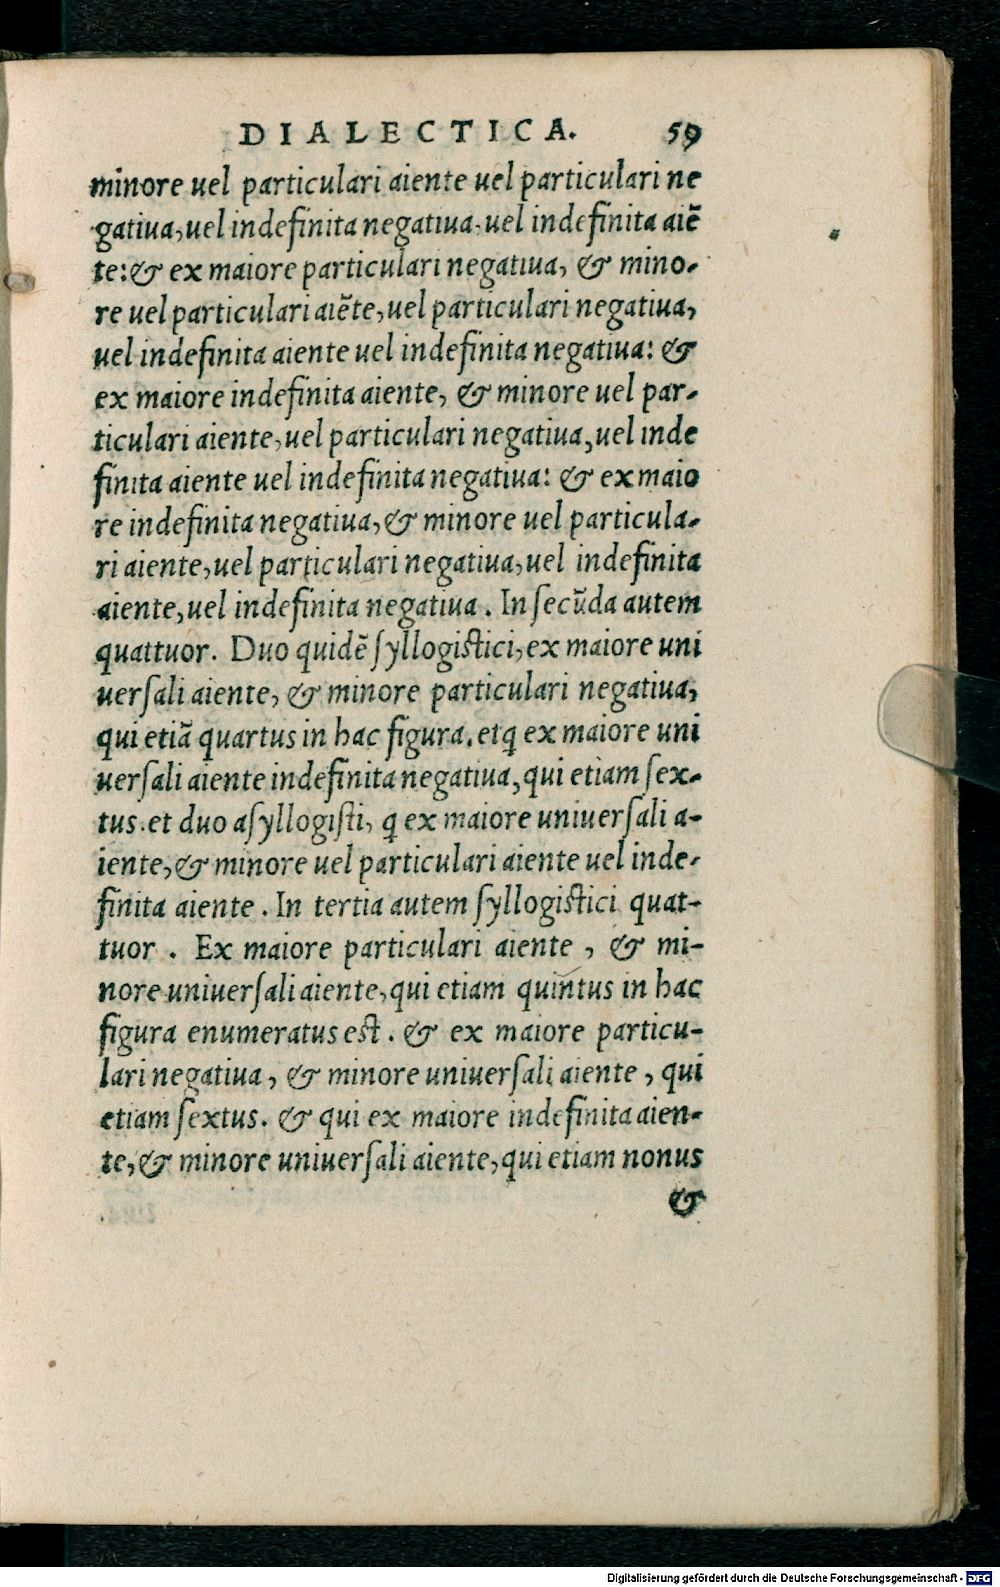 DIALECTICA. 59
minore uel particulari aiente uel particulari ne
gatiua, uel indefinita negatiua. uel indefinita aiē
te: & ex maiore particulari negatiua, & mino-
re uel particulari aiēte, uel particulari negatiua,
uel indefinita aiente uel indefinita negatiua: &
ex maiore indefinita aiente, & minore uel par-
ticulari aiente, uel particulari negatiua, uel inde
finita aiente uel indefinita negatiua: & ex maio
re indefinita negatiua, & minore uel particula-
ri aiente, uel particulari negatiua, uel indefinita
aiente, uel indefinita negatiua. In ſecūda autem
quattuor. Duo quidē ſyllogiſtici, ex maiore uni
uerſali aiente, & minore particulari negatiua,
qui etiā quartus in hac figura. etq̃ ex maiore uni
uerſali aiente indefinita negatiua, qui etiam ſex-
tus. et duo aſyllogiſti, q̃ ex maiore uniuerſali a-
iente, & minore uel particulari aiente uel inde-
finita aiente. In tertia autem ſyllogiſtici quat-
tuor. Ex maiore particulari aiente, & mi-
nore uniuerſali aiente, qui etiam quintus in hac
figura enumeratus eſt. & ex maiore particu-
lari negatiua, & minore uniuerſali aiente, qui
etiam ſextus. & qui ex maiore indefinita aien-
te, & minore uniuerſali aiente, qui etiam nonus
&
Digitalisierung gefördert durch die Deutsche Forschungsgemeinschaft - DFG